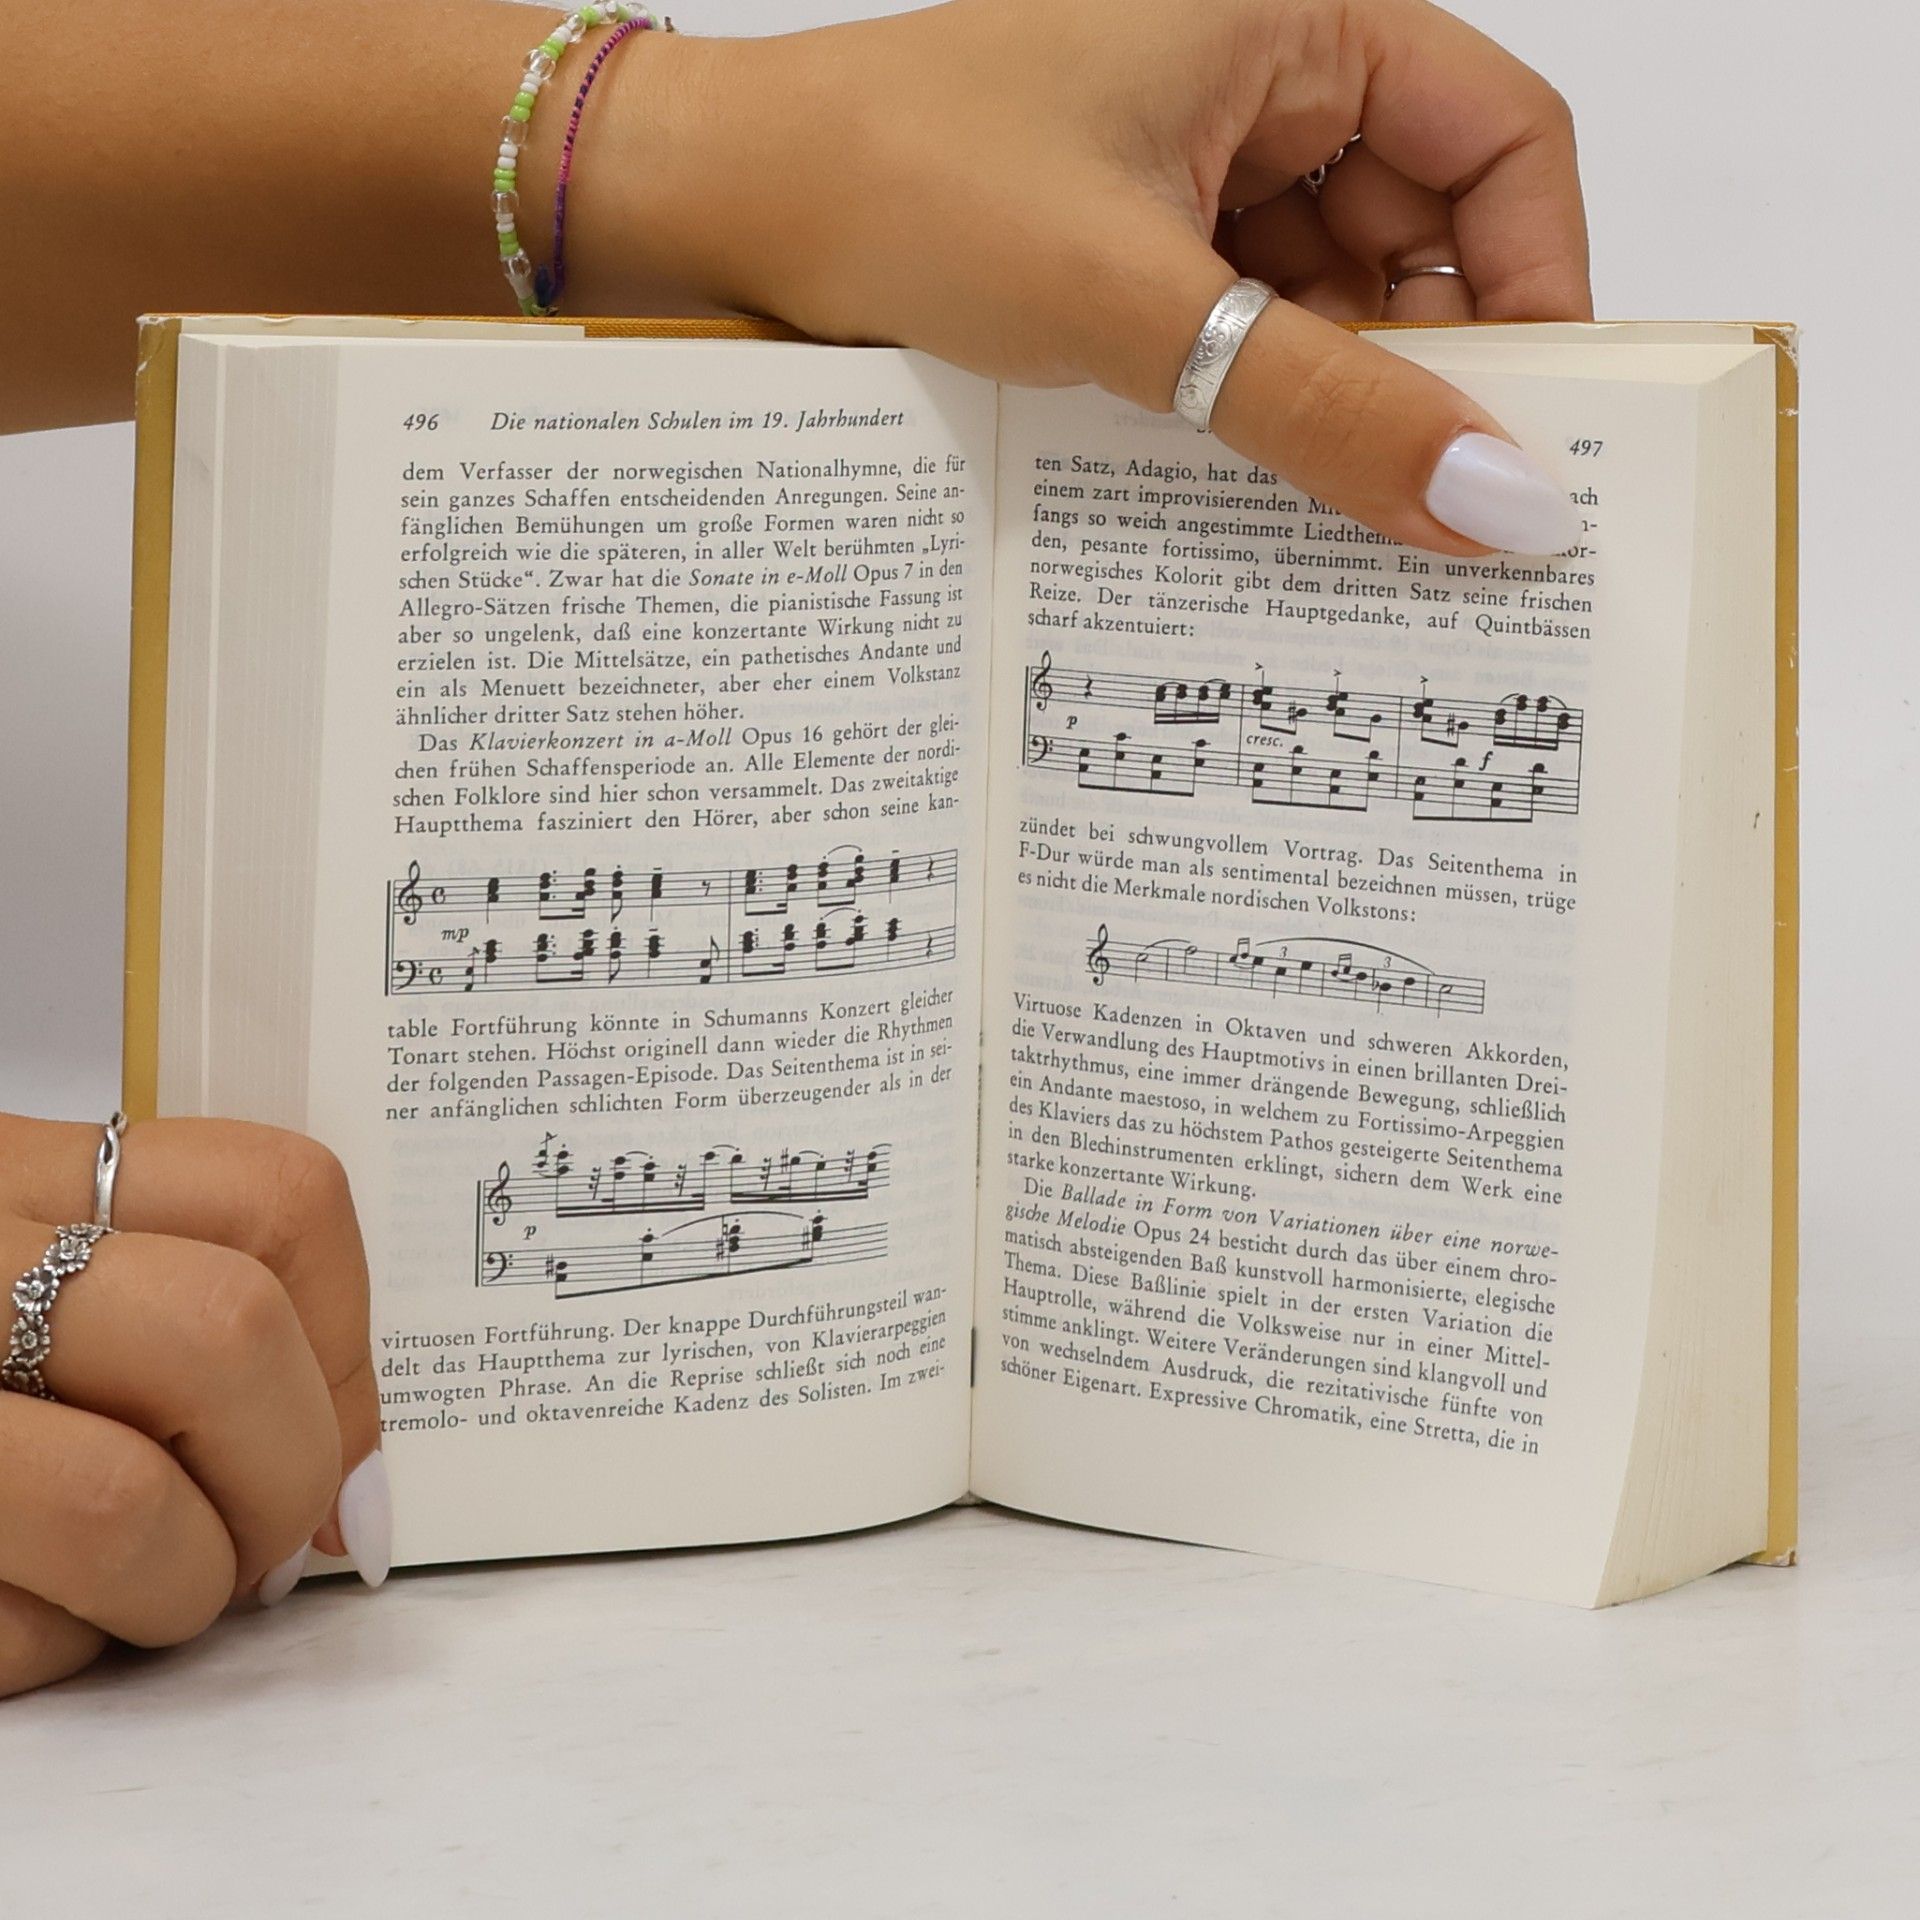 496 Die nationalen Schulen im 19. Jahrhundert
dem Verfasser der norwegischen Nationalhymne, die für
sein ganzes Schaffen entscheidenden Anregungen. Seine an-
fänglichen Bemühungen um große Formen waren nicht so
erfolgreich wie die späteren, in aller Welt berühmten „Lyri-
schen Stücke“. Zwar hat die Sonate in e-Moll Opus 7 in den
Allegro-Sätzen frische Themen, die pianistische Fassung ist
aber so ungelenk, daß eine konzertante Wirkung nicht zu
erzielen ist. Die Mittelsätze, ein pathetisches Andante und
ein als Menuett bezeichneter, aber eher einem Volkstanz
ähnlicher dritter Satz stehen höher.
Das Klavierkonzert in a-Moll Opus 16 gehört der glei-
chen frühen Schaffensperiode an. Alle Elemente der nordi-
schen Folklore sind hier schon versammelt. Das zweitaktige
Hauptthema fasziniert den Hörer, aber schon seine kan-
mp
table Fortführung könnte in Schumanns Konzert gleicher
Tonart stehen. Höchst originell dann wieder die Rhythmen
der folgenden Passagen-Episode. Das Seitenthema ist in sei-
ner anfänglichen schlichten Form überzeugender als in der
p
virtuosen Fortführung. Der knappe Durchführungsteil wan-
delt das Hauptthema zur lyrischen, von Klavierarpeggien
umwogten Phrase. An die Reprise schließt sich noch eine
tremolo- und oktavenreiche Kadenz des Solisten. Im zwei-
497
ten Satz, Adagio, hat das
einem zart improvisierenden
fangs so weich angestimmte
den, pesante fortissimo, übernimmt. Ein unverkennbares
norwegisches Kolorit gibt dem dritten Satz seine frischen
Reize. Der tänzerische Hauptgedanke, auf Quintbässen
scharf akzentuiert:
p cresc. f
zündet bei schwungvollem Vortrag. Das Seitenthema in
F-Dur würde man als sentimental bezeichnen müssen, trüge
es nicht die Merkmale nordischen Volkstons:
3 3
Virtuose Kadenzen in Oktaven und schweren Akkorden,
die Verwandlung des Hauptmotivs in einen brillanten Drei-
taktrhythmus, eine immer drängende Bewegung, schließlich
ein Andante maestoso, in welchem zu Fortissimo-Arpeggien
des Klaviers das zu höchstem Pathos gesteigerte Seitenthema
in den Blechinstrumenten erklingt, sichern dem Werk eine
starke konzertante Wirkung.
Die Ballade in Form von Variationen über eine norwe-
gische Melodie Opus 24 besticht durch das über einem chro-
matisch absteigenden Baß kunstvoll harmonisierte, elegische
Thema. Diese Baßlinie spielt in der ersten Variation die
Hauptrolle, während die Volksweise nur in einer Mittel-
stimme anklingt. Weitere Veränderungen sind klangvoll und
von wechselndem Ausdruck, die rezitativische fünfte von
schöner Eigenart. Expressive Chromatik, eine Stretta, die in